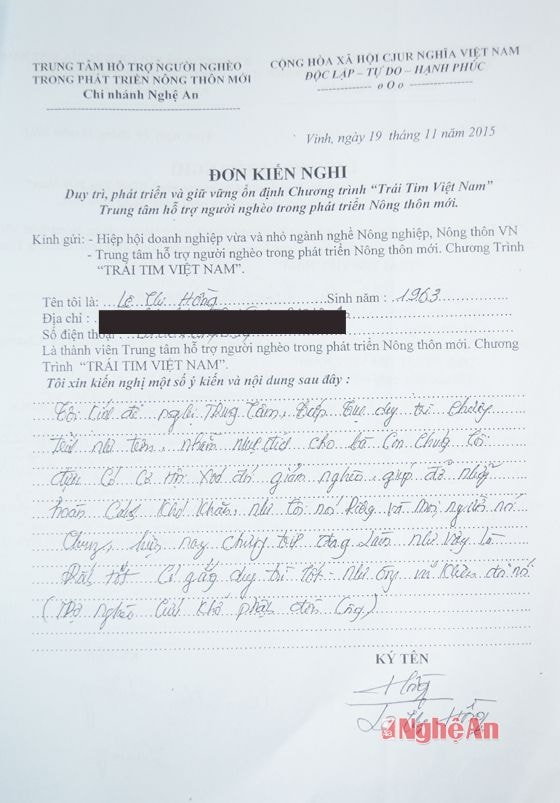 TRUNG TÂM HỖ TRỢ NGƯỜI NGHÈO
TRONG PHÁT TRIỂN NÔNG THÔN MỚI
Chi nhánh Nghệ An
CỘNG HÒA XÃ HỘI CJUR NGHĨA VIỆT NAM
ĐỘC LẬP – TỰ DO – HẠNH PHÚC
o O o
Vinh, ngày 19 tháng 11 năm 2015
ĐƠN KIẾN NGHI
Duy trì, phát triển và giữ vững ổn định Chương trình “Trái Tim Việt Nam”
Trung tâm hỗ trợ người nghèo trong phát triển Nông thôn mới.
Kính gửi: - Hiệp hội doanh nghiệp vừa và nhỏ ngành nghề Nông nghiệp, Nông thôn VN
- Trung tâm hỗ trợ người nghèo trong phát triển Nông thôn mới. Chương Trình
“TRÁI TIM VIỆT NAM”.
Tên tôi là: Lê Thị Hồng Sinh năm : 1963
Địa chỉ :
Số điện thoại :
Là thành viên Trung tâm hỗ trợ người nghèo trong phát triển Nông thôn mới. Chương
Trình “TRÁI TIM VIỆT NAM”.
Tôi xin kiến nghị một số ý kiến và nội dung sau đây :
Tôi kính đề nghị Trung tâm, tiếp tục duy trì chương
như trên, nhằm cho bà con chúng tôi
được có cơ hội xoá đói giảm nghèo, giúp đỡ những
hoàn cảnh khó khăn, như tôi nói Riêng và mọi người nói
chung, hiện nay chương trình đang làm như vậy là
Rất tốt cố gắng duy trì tốt như
KÝ TÊN
Hồng
Lê Thị Hồng
Nghệ An